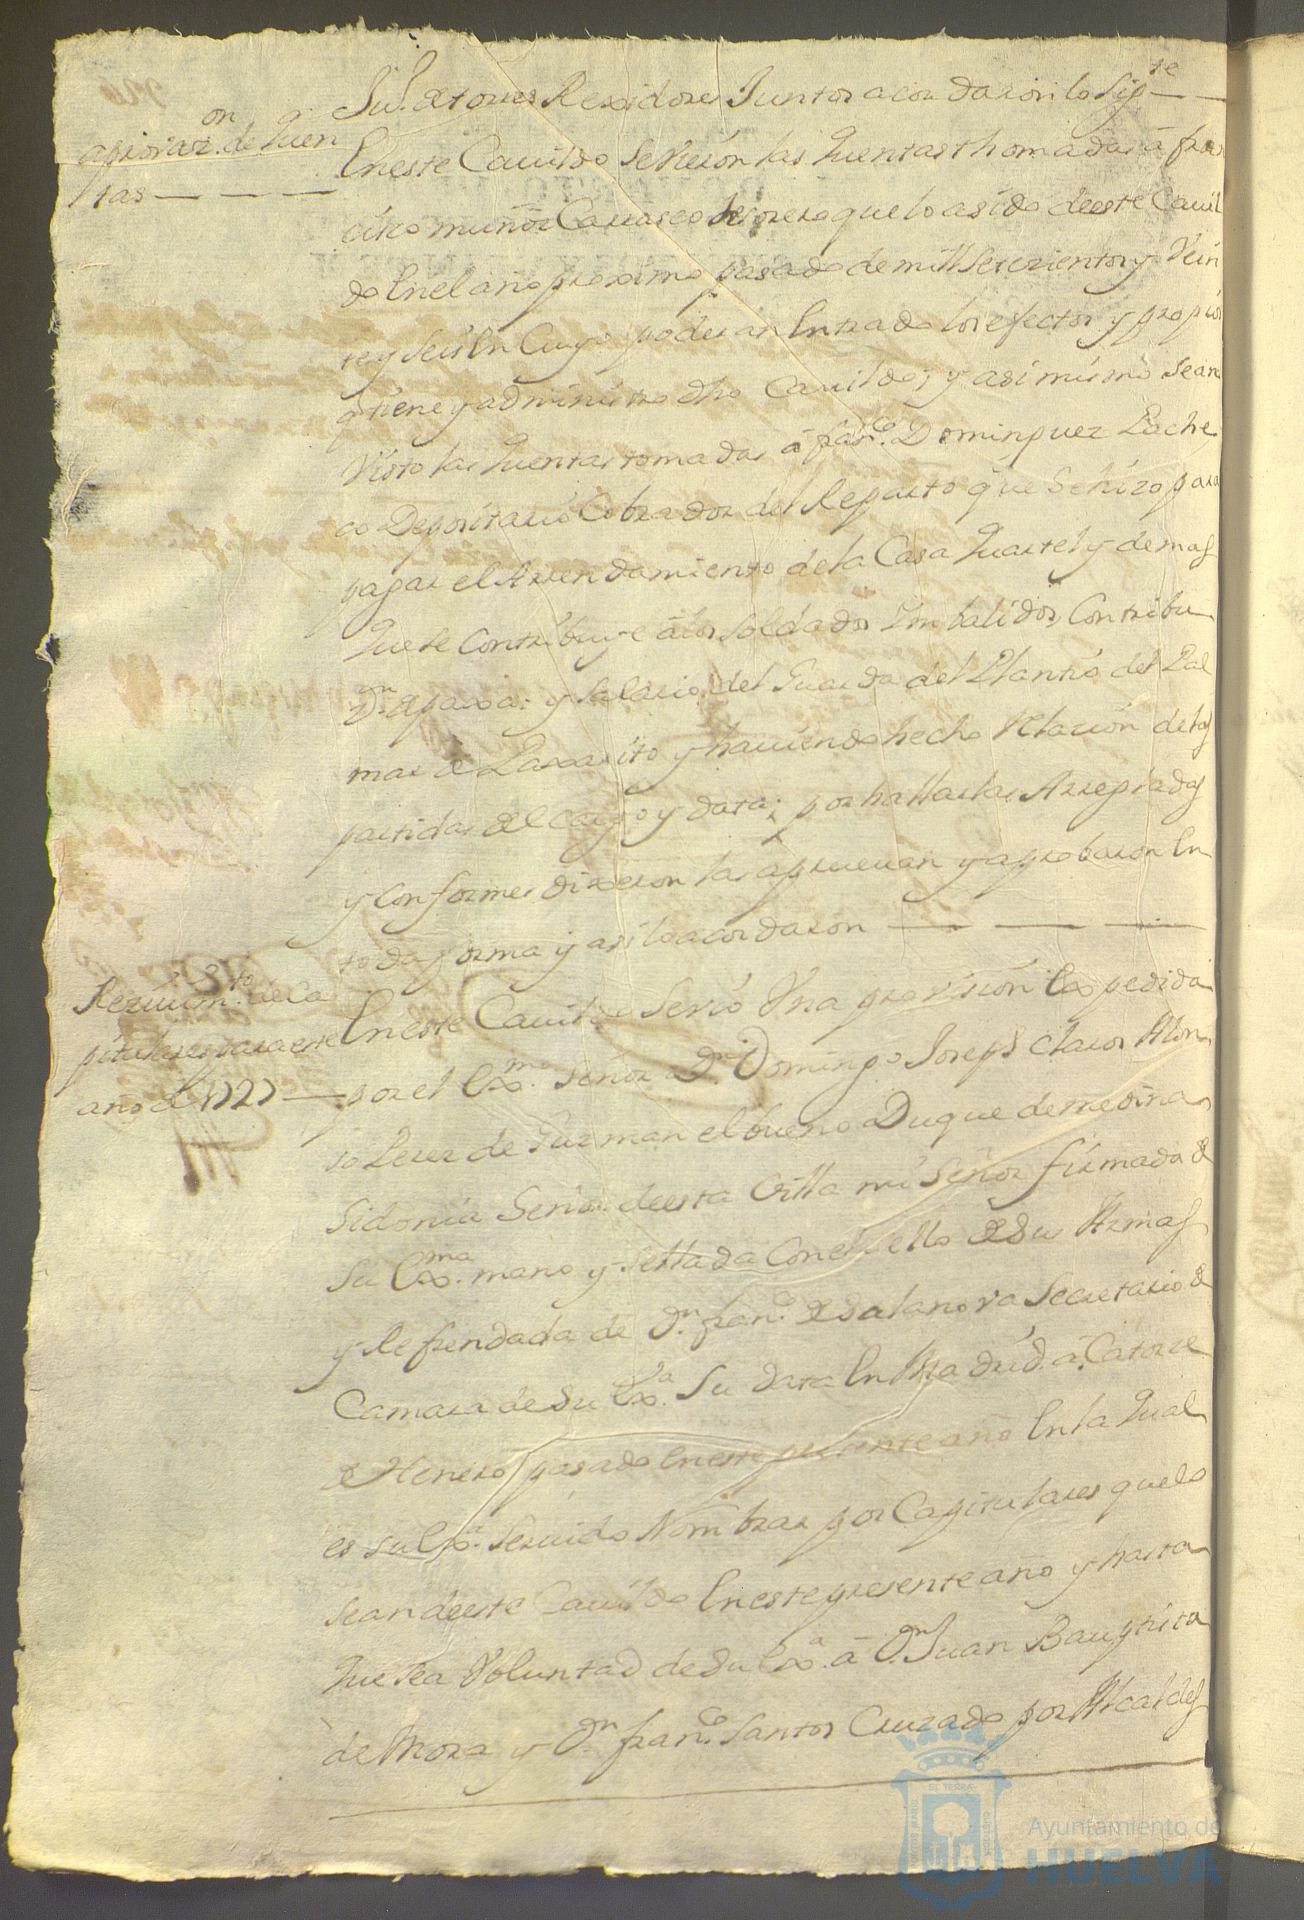 Ju.º de torres Rexidores Juntos acordaron lo sig.te
aprovaz.on de Quen
tas
En este Cavildo se vieron las Quentas thomadas â fran
cisco muñoz Carrasco thesorero que lo a sido de este Cavil
do En el año proximo pasado de mill setezientos y Vein
te y seis En Cuyo poder an Entrado los efectos y propios
q tiene y administra dho Cavildo; y asi mismo se an
Visto las Quentas tomadas â fran.co Dominguez Pache
co Depositario Cobrador del Reparto que se hizo para
pagar el Arrendamiento de la Casa Quartel y demas
Que se contribuye â los soldados Imbalidos, Contribu
z.on de paxa; y salario del Guarda del Plantio del Pal
mar de y haviendo hecho Relazion de las
partidas del cargo y data; por hallarlas Arregladas
y Conformes dixeron las aprueuan y aprobaron En
toda forma y asi lo acordaron
Rezivim.to de Ca
pitulares para este
año de 1727
En este Cavildo se vio Vna provision Expedida
por el Ex.mo señor D.n Domingo Joseph Claros Alon
so Perez de Guzman el bueno Duque de medina
Sidonia Señor de esta Villa mi Señor firmada de
Su Ex.ma mano y sellada Con el sello de su Armas
y Refrendada de D.n fran.co de salanova Secretario de
Camara de Su Ex.a Su data En Madrid â Catorze
de Henero pasado en este presente año En la Qual
es su Ex.a seruido Nombrar por Capitulares que lo
sean de este Cauildo En este presente año y hasta
Que sea Voluntad de Su Ex.a â D.n Juan Bauptista
de Mora y D.n fran.co Santos Cruzado por Alcaldes
Ayuntamiento de
HUELVA